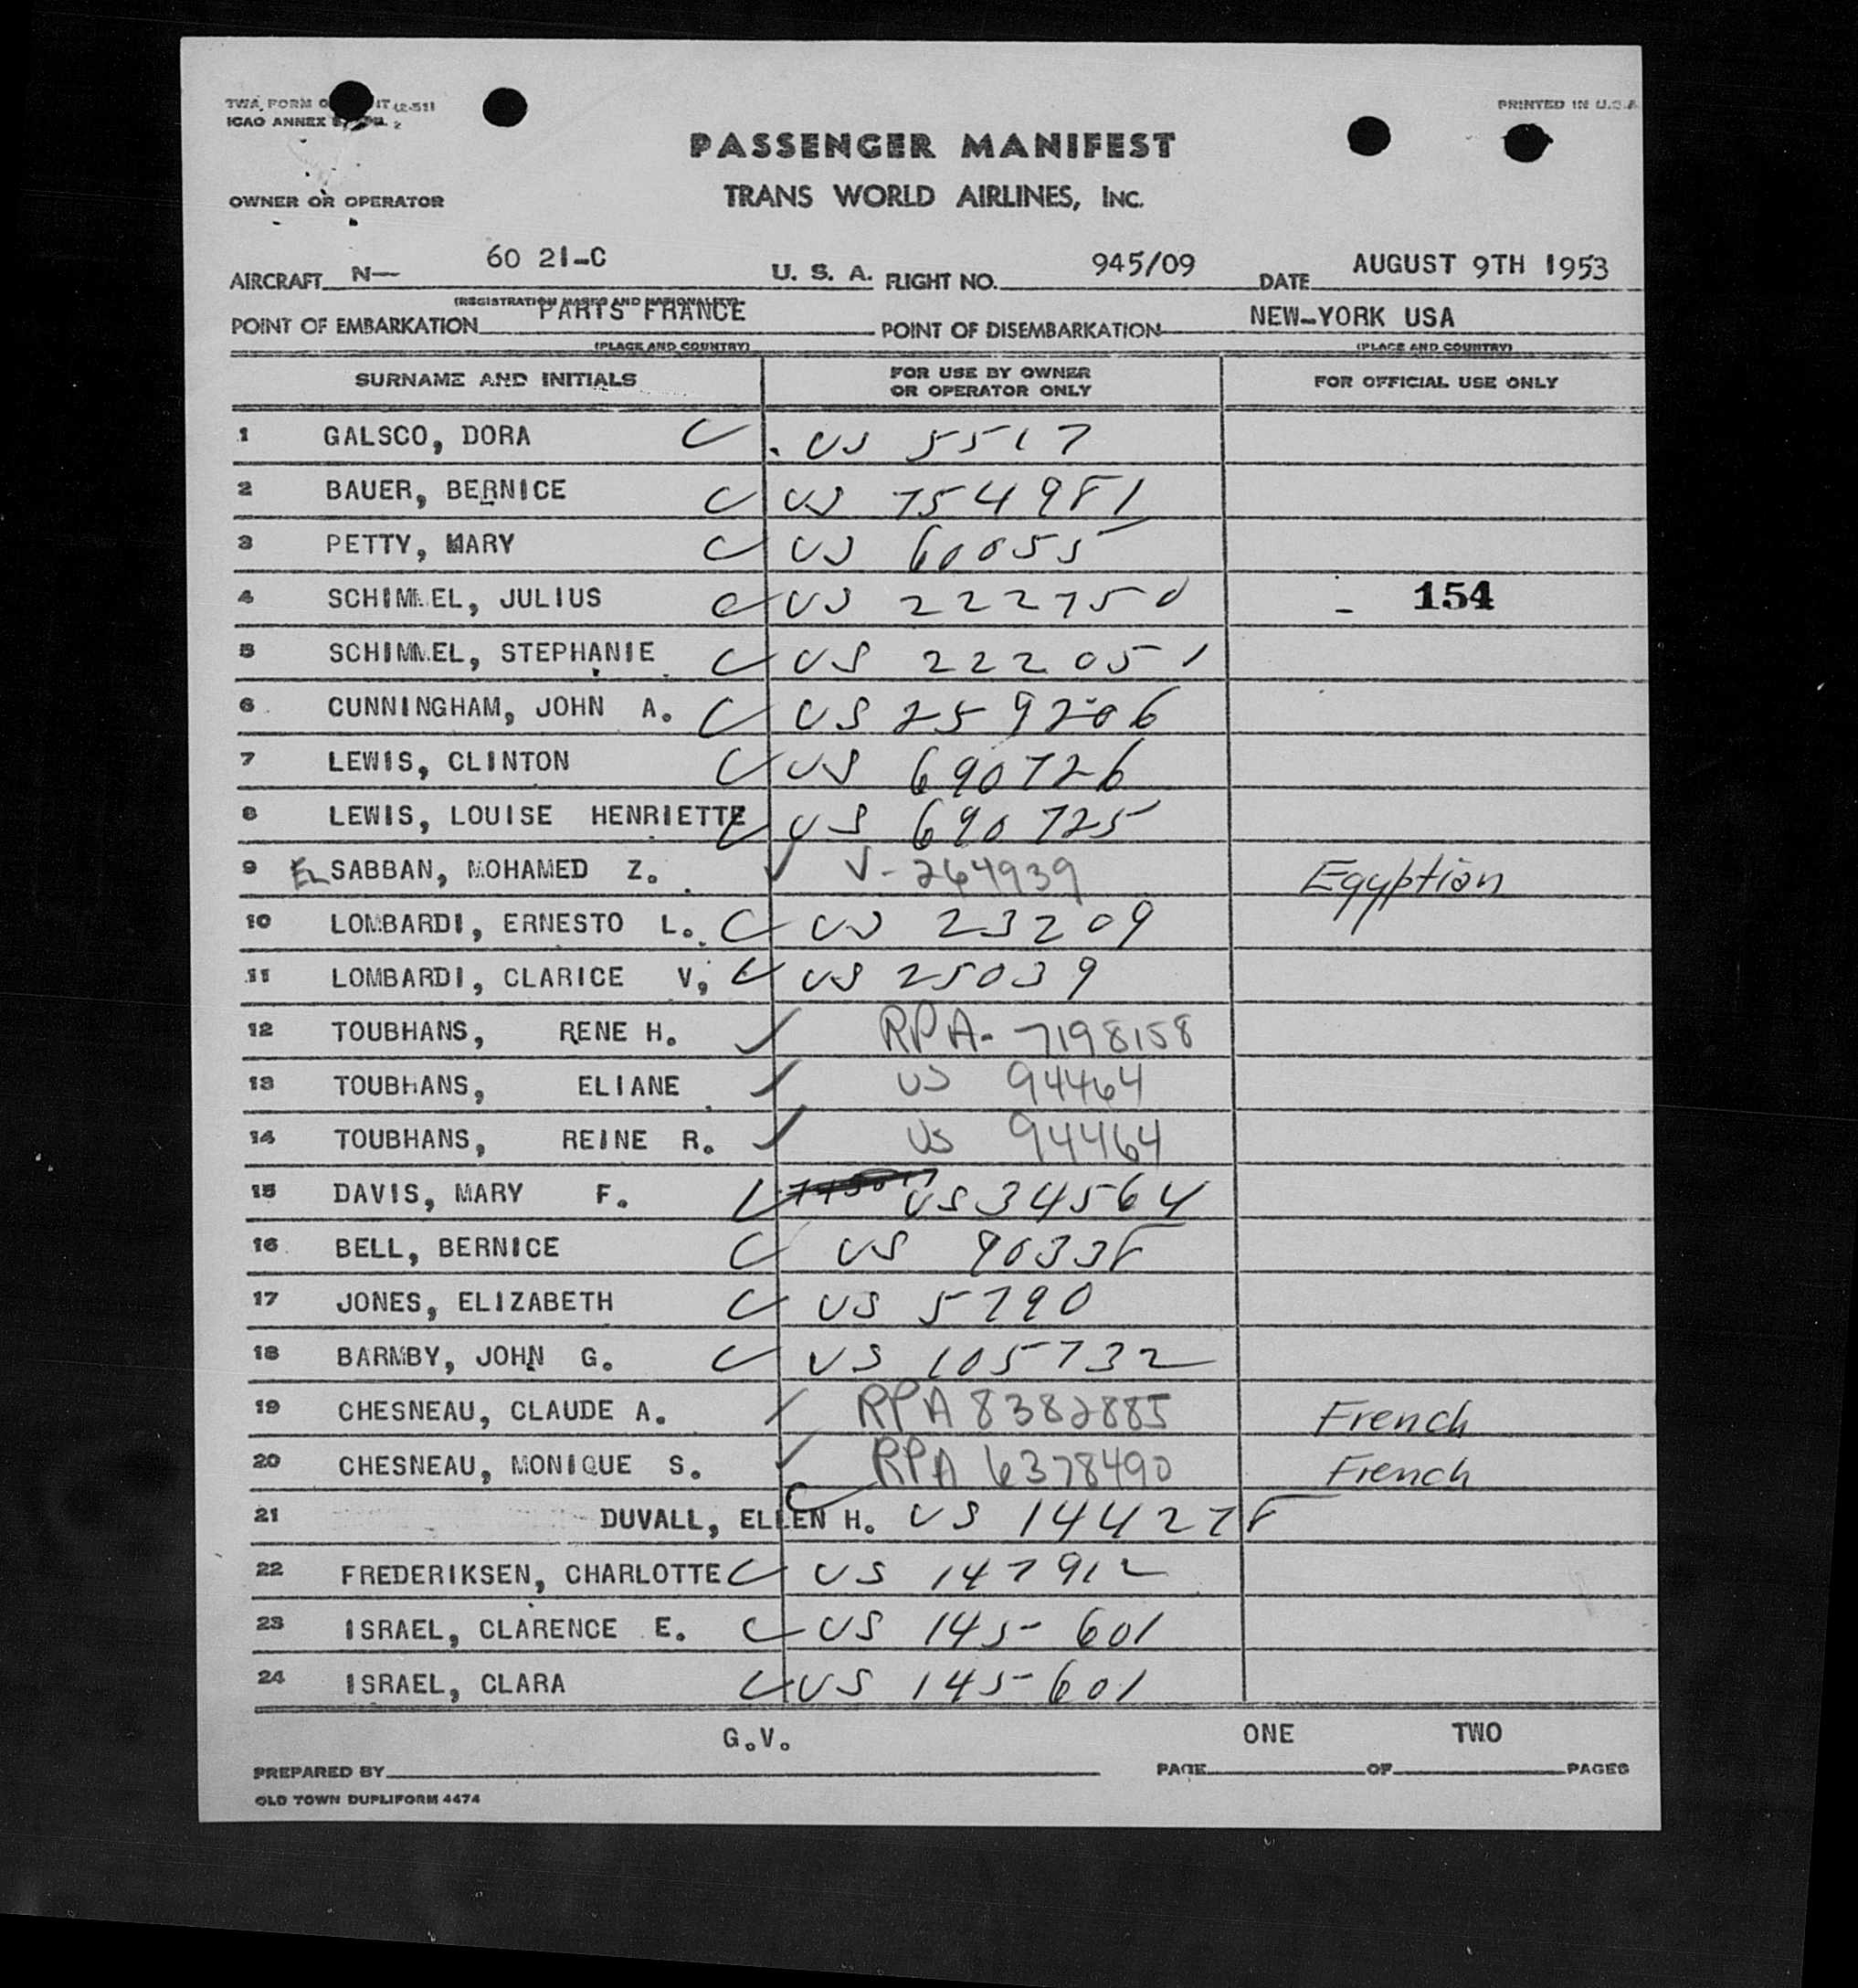 TWA FORM O IT (2-51)
ICAO ANNEX
PRINTED IN U.S.A
PASSENGER MANIFEST
TRANS WORLD AIRLINES, INC.
OWNER OR OPERATOR
AIRCRAFT N— 60 21-C U. S. A. FLIGHT NO. 945/09 DATE AUGUST 9TH 1953
(REGISTRATION MARKS AND NATIONALITY)
POINT OF EMBARKATION PARIS FRANCE POINT OF DISEMBARKATION NEW-YORK USA
(PLACE AND COUNTRY) (PLACE AND COUNTRY)
SURNAME AND INITIALS FOR USE BY OWNER OR OPERATOR ONLY FOR OFFICIAL USE ONLY
1 GALSCO, DORA US 5517
2 BAUER, BERNICE US 754981
3 PETTY, MARY US 60055
4 SCHIMMEL, JULIUS US 222750 154
5 SCHIMMEL, STEPHANIE US 222051
6 CUNNINGHAM, JOHN A. US 259206
7 LEWIS, CLINTON US 690726
8 LEWIS, LOUISE HENRIETTE US 690725
9 EL SABBAN, MOHAMED Z. V-264939 Egyptian
10 LOMBARDI, ERNESTO L. US 23209
11 LOMBARDI, CLARICE V, US 25039
12 TOUBHANS, RENE H. RPA- 7198158
13 TOUBHANS, ELIANE US 94464
14 TOUBHANS, REINE R. US 94464
15 DAVIS, MARY F. US 34564
16 BELL, BERNICE US 90338
17 JONES, ELIZABETH US 5790
18 BARMBY, JOHN G. US 105732
19 CHESNEAU, CLAUDE A. RPA 8382885 French
20 CHESNEAU, MONIQUE S. RPA 6378490 French
21 DUVALL, ELLEN H. US 144278
22 FREDERIKSEN, CHARLOTTE US 147912
23 ISRAEL, CLARENCE E. US 145-601
24 ISRAEL, CLARA US 145-601
PREPARED BY G.V. PAGE ONE OF TWO PAGES
OLD TOWN DUPLIFORM 4474